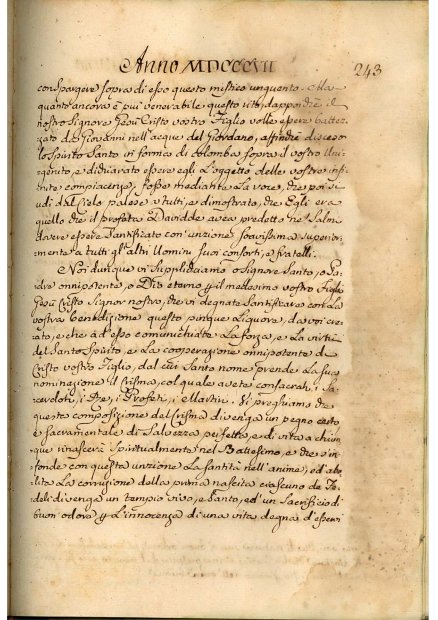 Anno MDCCCVII 243
con Spargere sopra di esso questo mistico unguento. Ma
quanto ancora è piu' venerabile questo rito, dappoichè il
nostro Signore Gesù Cristo vostro Figlio volle essere battez
zato da Giovanni nell'acque del Giordano, affinchè disceso
lo Spirito Santo in forma di colomba sopra il vostro Uni-
genito, e dichiarato essere egli l'oggetto delle vostre infi
nite compiacenze, fosse mediante la voce, che poi si
udì dal Cielo palese a tutti, e dimostrato, che Egli era
quello che il profeta Davidde avea predetto ne' Salmi
dovere essere Santificato con'unzione soavissima superior-
mente a tutti gl'altri Uomini suoi consorti, e fratelli.
Noi dunque vi Supplichiamo o Signore Santo, o Pa
dre onnipotente, o Dio eterno p il medesimo vostro Figlio
Gesù Cristo Signor nostro, che vi degnate Santificare con la
vostra benedizione questo pingue liquore, da voi cre
ato, e che ad esso comunichiate la forza, e la virtù
del Santo Spirito, e la cooperazione onnipotente di
Cristo vostro Figlio, dal cui Santo nome prende la sua
nominazione il Crisma, col quale avete consacrati i Sa
cerdoti, i Re, i Profeti, i Martiri. Vi preghiamo che
questa composizione del Crisma divenga un pegno certo
e sacramentale di Salvezza perfetta, e di vita a chiun
que rinascerà Spiritualmente nel Battesimo, e che s'in
fonde con questa unzione la Santità nell'anime, ed abo
lita la corruzione della prima nascita ciascuno de' Fe
deli divenga un tempio vivo, e Santo, ed un Sacrificio di
buon'odore p l'innocenza di una vita degna d'esservi